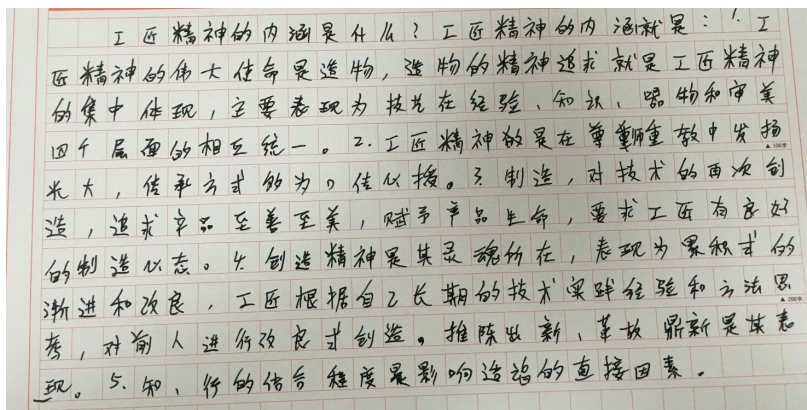 工匠精神的内涵是什么？工匠精神的内涵就是：1.工
匠精神的伟大使命是造物，造物的精神追求就是工匠精神
的集中体现，主要表现为技艺在经验、知识、器物和审美
四个层面的相互统一。2.工匠精神的是在尊师重教中发扬
光大，传承方式的为口传心授。3.制造，对技术的再次创
造，追求产品至善至美，赋予产品生命，要求工匠有良好
的制造心态。4.创造精神是其灵魂所在，表现为累积式的
渐进和改良，工匠根据自己长期的技术实践经验和方法思
考，对前人进行改良式创造。推陈出新、革故鼎新是其表
现。5.知、行的结合程度是影响造诣的直接因素。
▲100字
▲200字